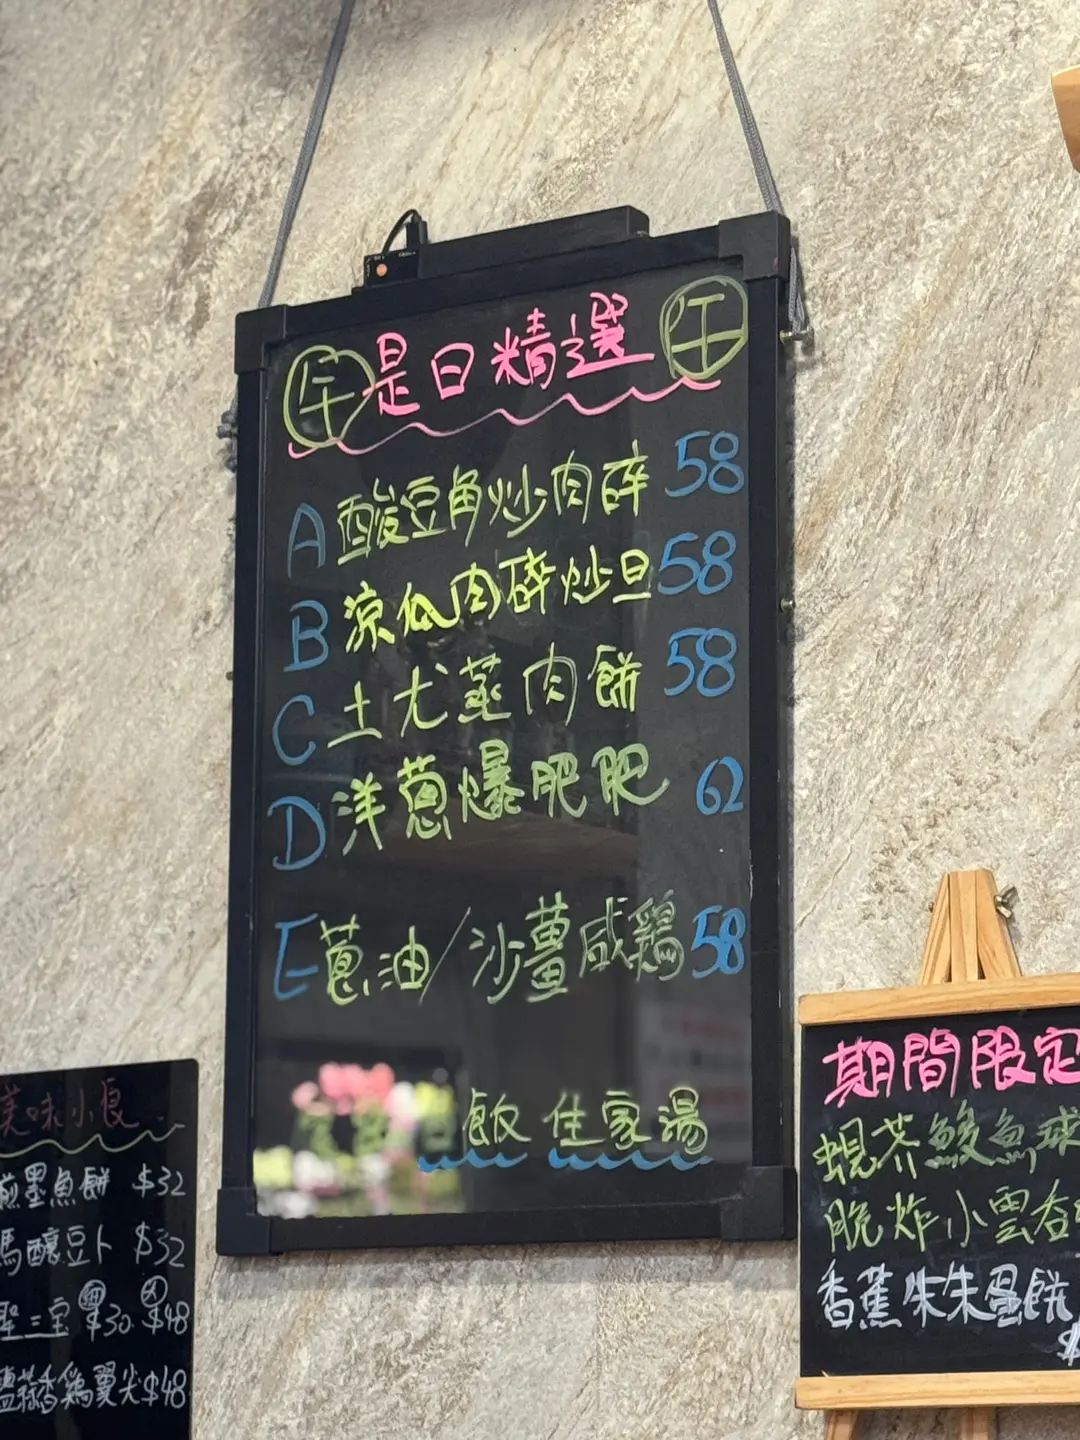 午 是日精選 午
A 酸豆角炒肉碎 58
B 涼瓜肉碎炒旦 58
C 土尤蒸肉餅 58
D 洋蔥爆肥肥 62
E 蔥油/沙薑咸鷄 58
飲 住家湯
美味小食
煎墨魚餅 $32
釀豆卜 $32
三宝 $30 $48
蒜香鷄翼尖 $48
期間限定
蜆芥鯪魚球
脆炸小雲吞
香蕉朱朱蛋餅
$